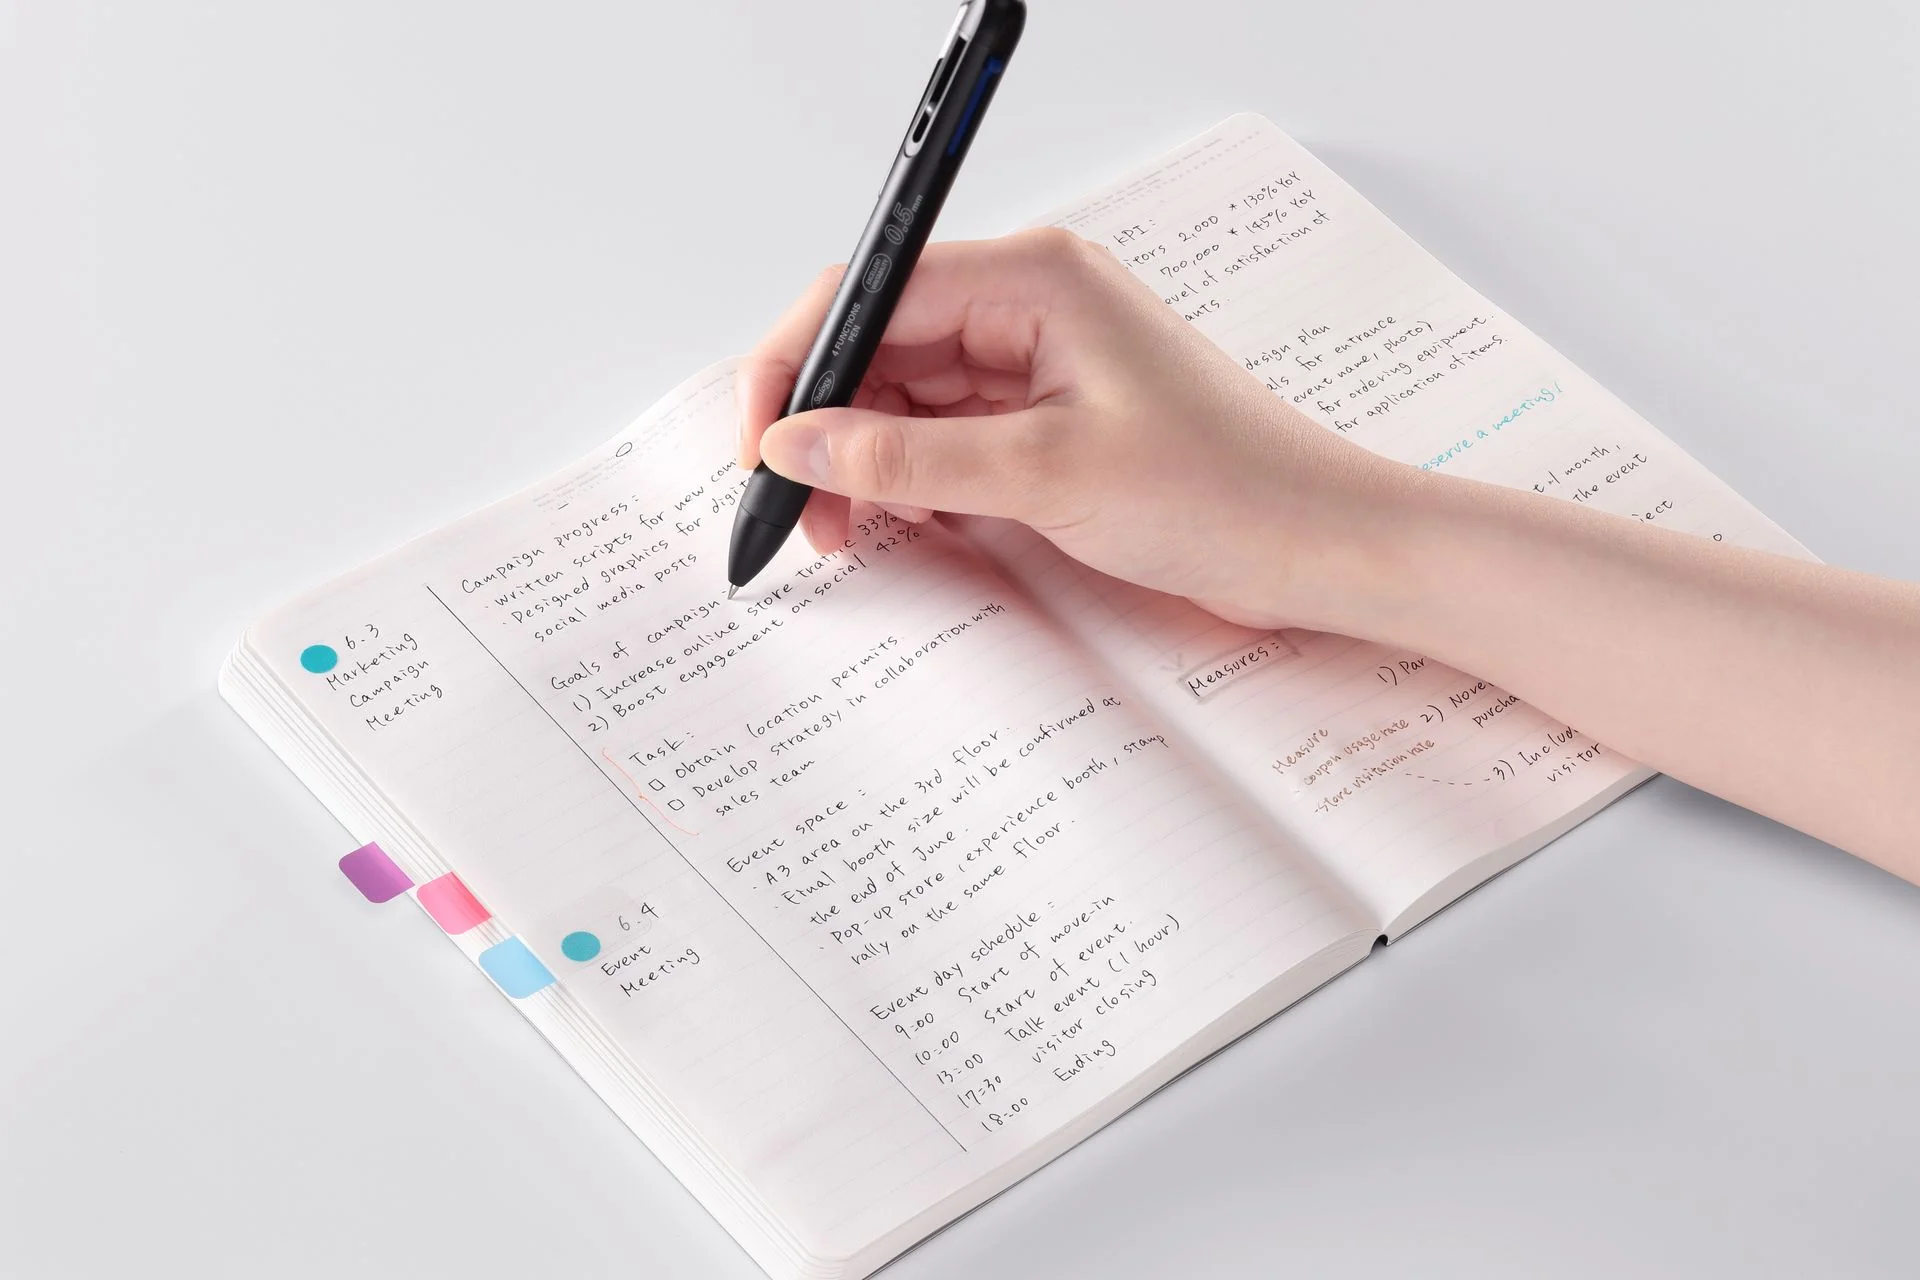 0.5mm
EXCELLENT
4 FUNCTIONS
PEN
Stalogy
6.3
Marketing
Campaign
Meeting
Campaign progress:
· written scripts for new com
· Designed graphics for digit
social media posts
Goals of campaign:
1) Increase online store traffic 33%
2) Boost engagement on social 42%
Task:
□ Obtain location permits.
□ Develop strategy in collaboration with
sales team
6.4
Event
Meeting
Event space:
· A3 area on the 3rd floor.
· Final booth size will be confirmed at
the end of June.
· Pop-up store, experience booth, stamp
rally on the same floor.
Event day schedule:
9:00 Start of move-in
10:00 Start of event.
13:00 Talk event (1 hour)
17:30 visitor closing
18:00 Ending
KPI:
itors 2,000 * 130% YoY
700,000 * 145% YoY
evel of satisfaction of
ants.
design plan
als for entrance
event name, photo)
for ordering equipment.
for application of items.
eserve a meeting!
t +1 month,
the event
ject
Measures:
1) Par
2) Nove
purcha
3) Includ
visitor
Measure
· coupon usage rate
· store visitation rate